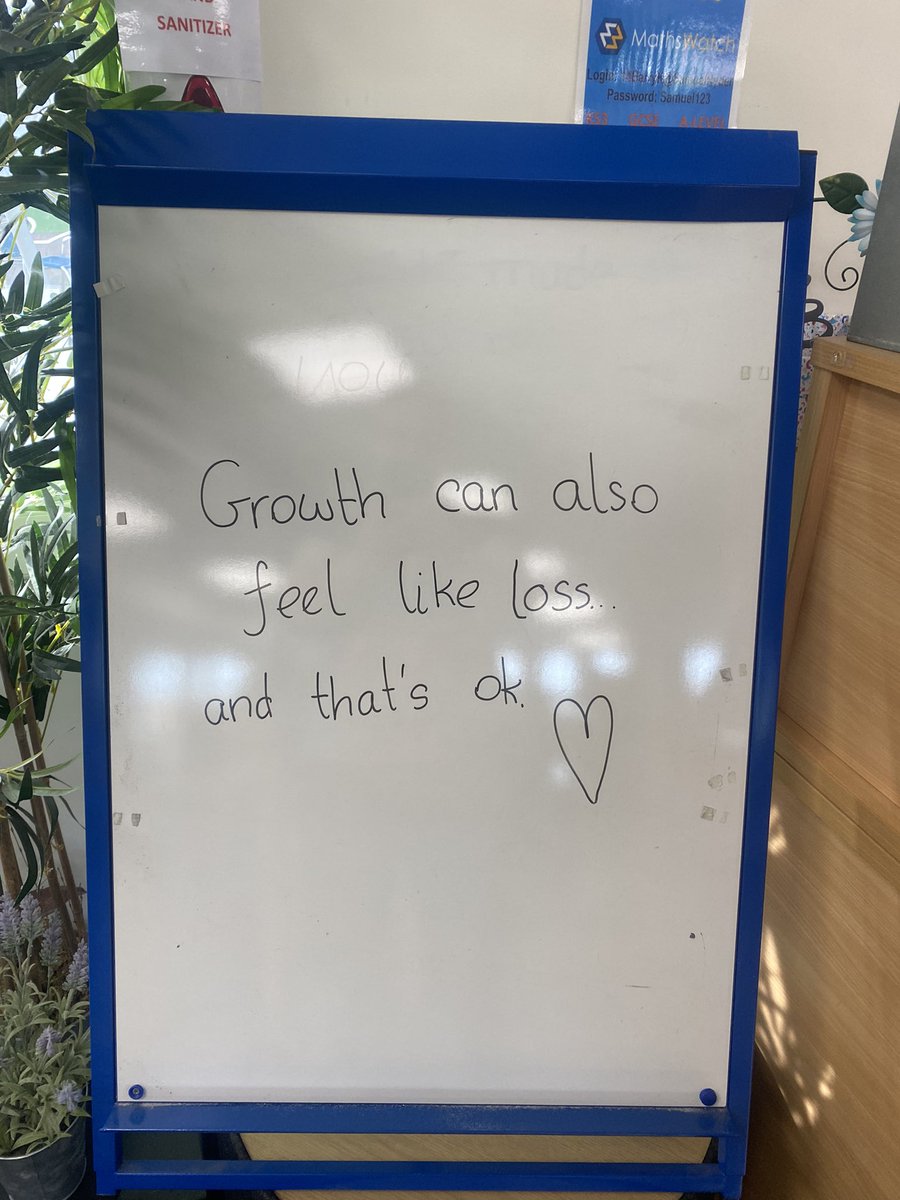 SANITIZER
MathsWatch
Password: Samuel123
Growth can also
feel like loss...
and that's ok.